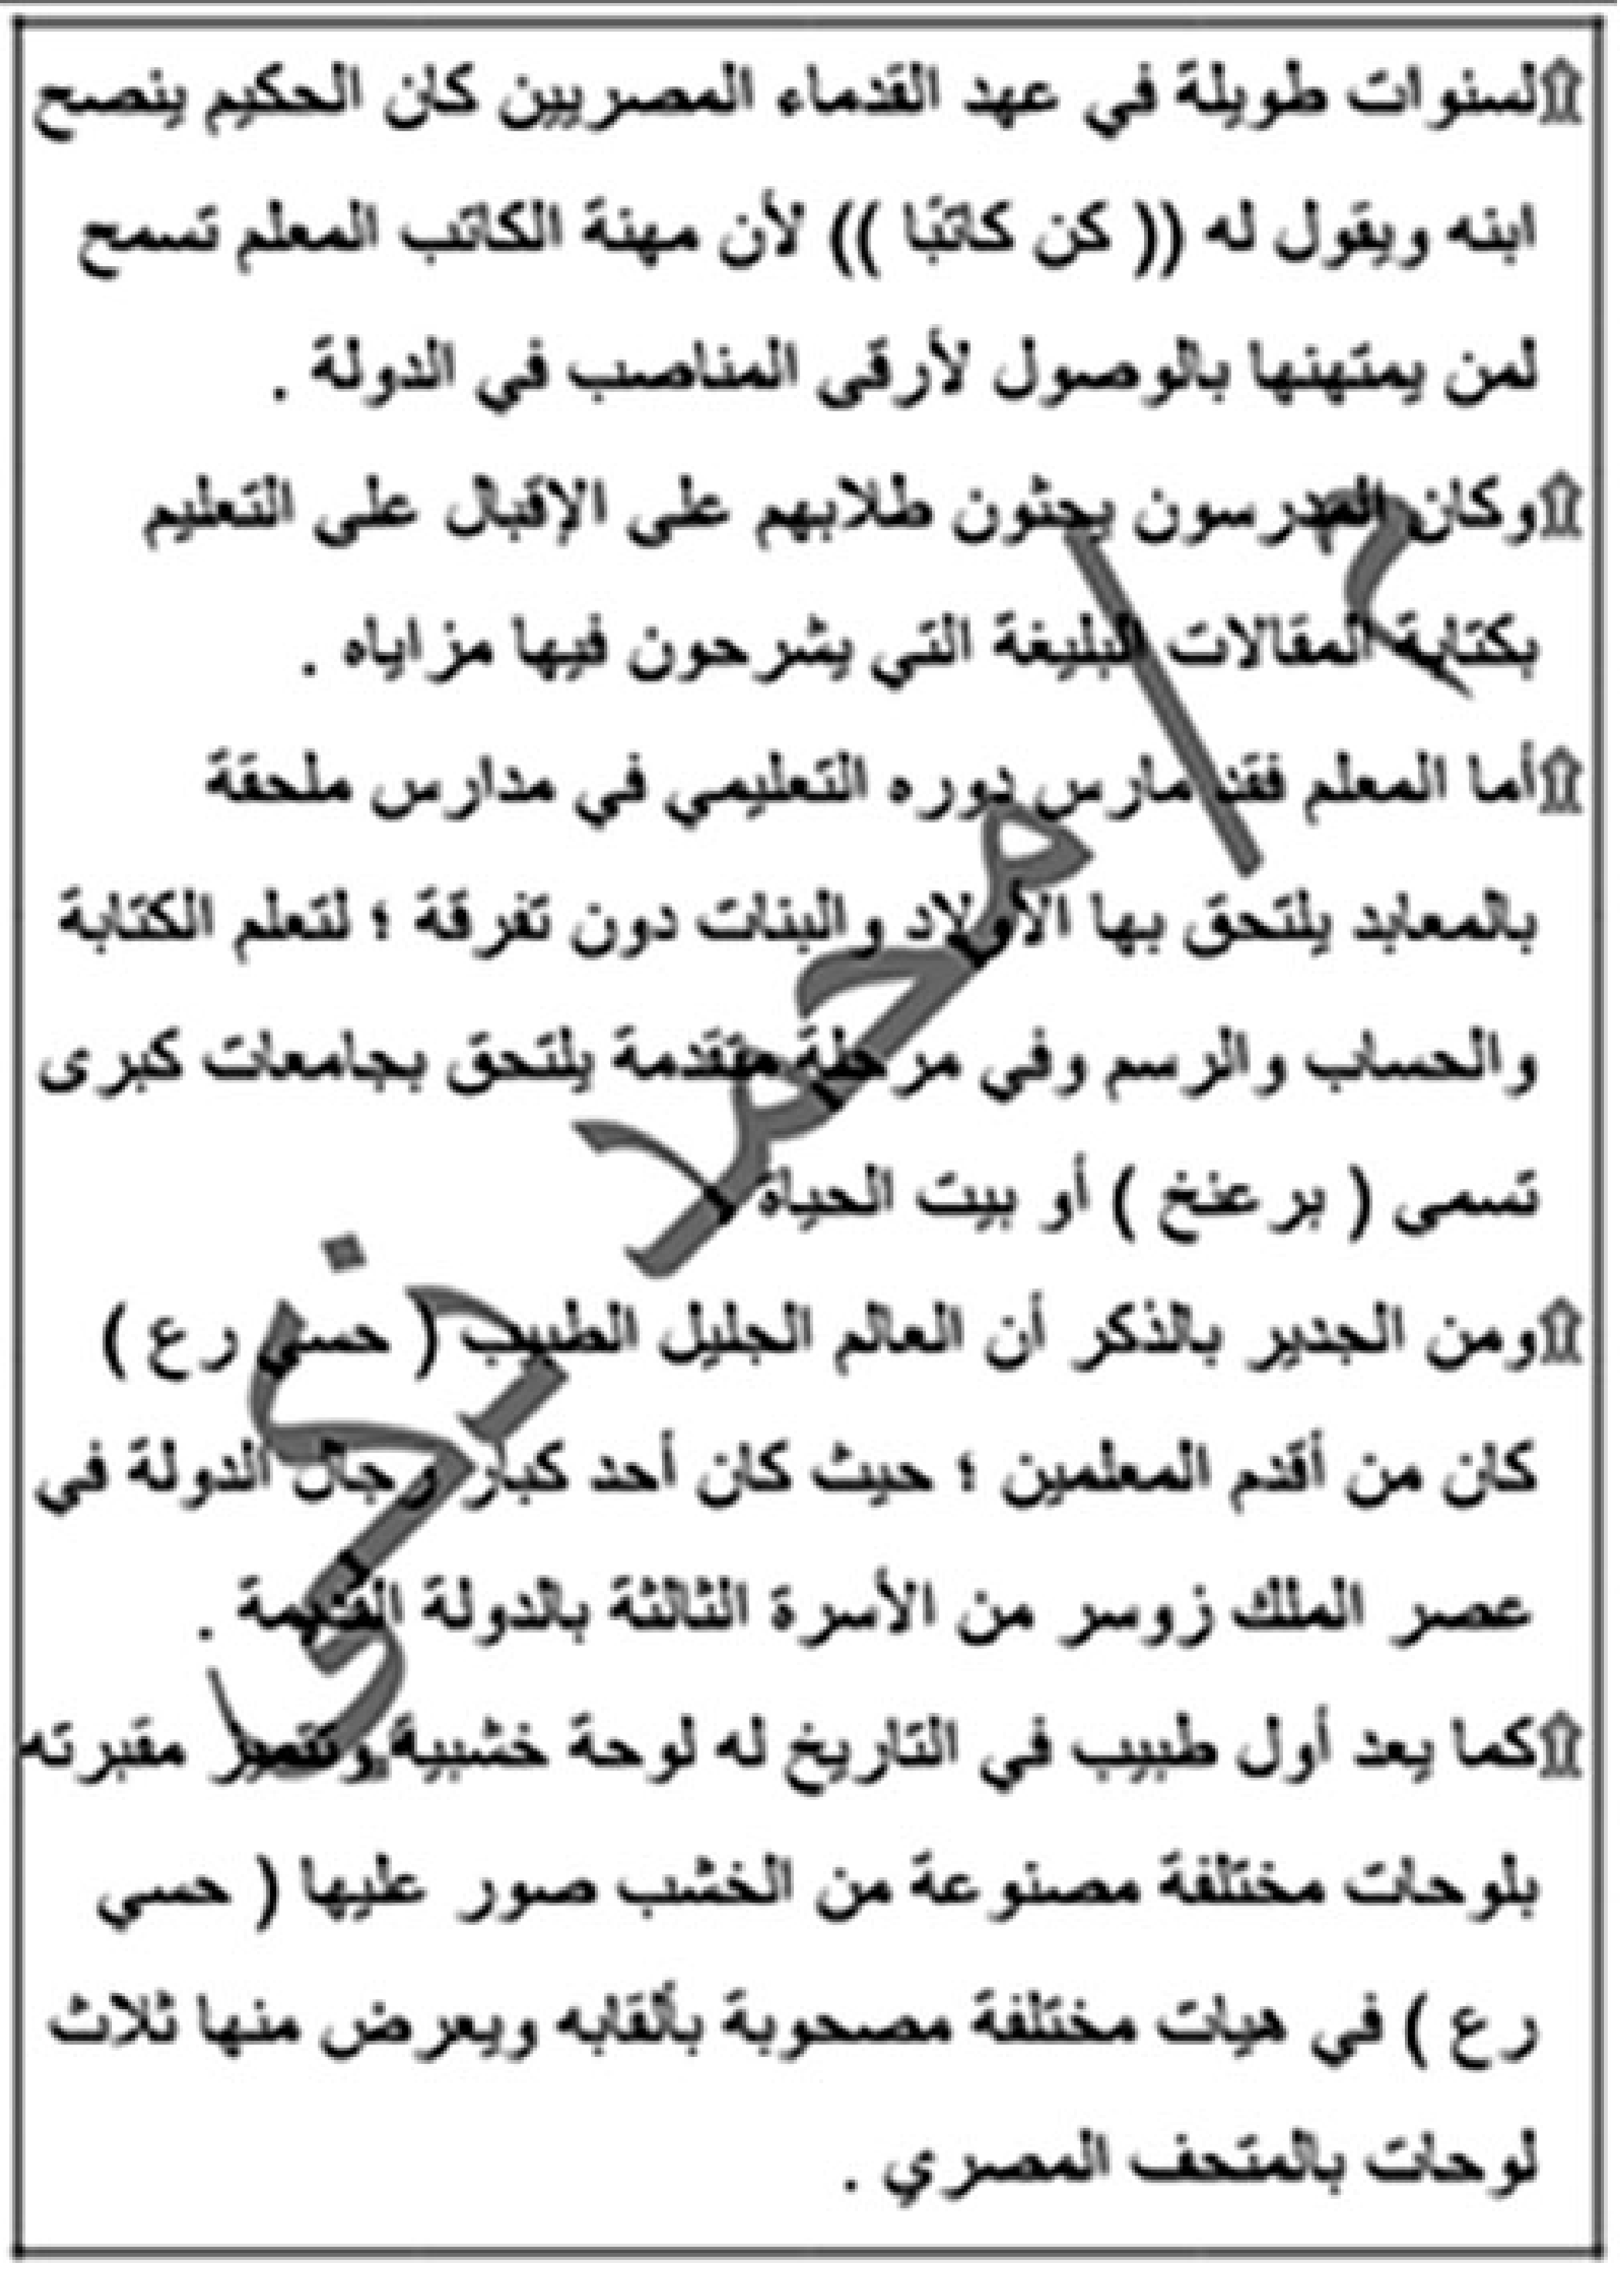 ۩لسنوات طويلة في عهد القدماء المصريين كان الحكيم ينصح
ابنه ويقول له (( كن كاتبًا )) لأن مهنة الكاتب المعلم تسمح
لمن يمتهنها بالوصول لأرقى المناصب في الدولة .
۩وكان المدرسون يحثون طلابهم على الإقبال على التعليم
بكتابة المقالات البليغة التي يشرحون فيها مزاياه .
۩أما المعلم فقد مارس دوره التعليمي في مدارس ملحقة
بالمعابد يلتحق بها الأولاد والبنات دون تفرقة ؛ لتعلم الكتابة
والحساب والرسم وفي مرحلة متقدمة يلتحق بجامعات كبرى
تسمى ( برعنخ ) أو بيت الحياة
۩ومن الجدير بالذكر أن العالم الجليل الطبيب ( حسي رع )
كان من أقدم المعلمين ؛ حيث كان أحد كبار رجال الدولة في
عصر الملك زوسر من الأسرة الثالثة بالدولة القديمة .
۩كما يعد أول طبيب في التاريخ له لوحة خشبية وتتميز مقبرته
بلوحات مختلفة مصنوعة من الخشب صور عليها ( حسي
رع ) في هيات مختلفة مصحوبة بألقابه ويعرض منها ثلاث
لوحات بالمتحف المصري .